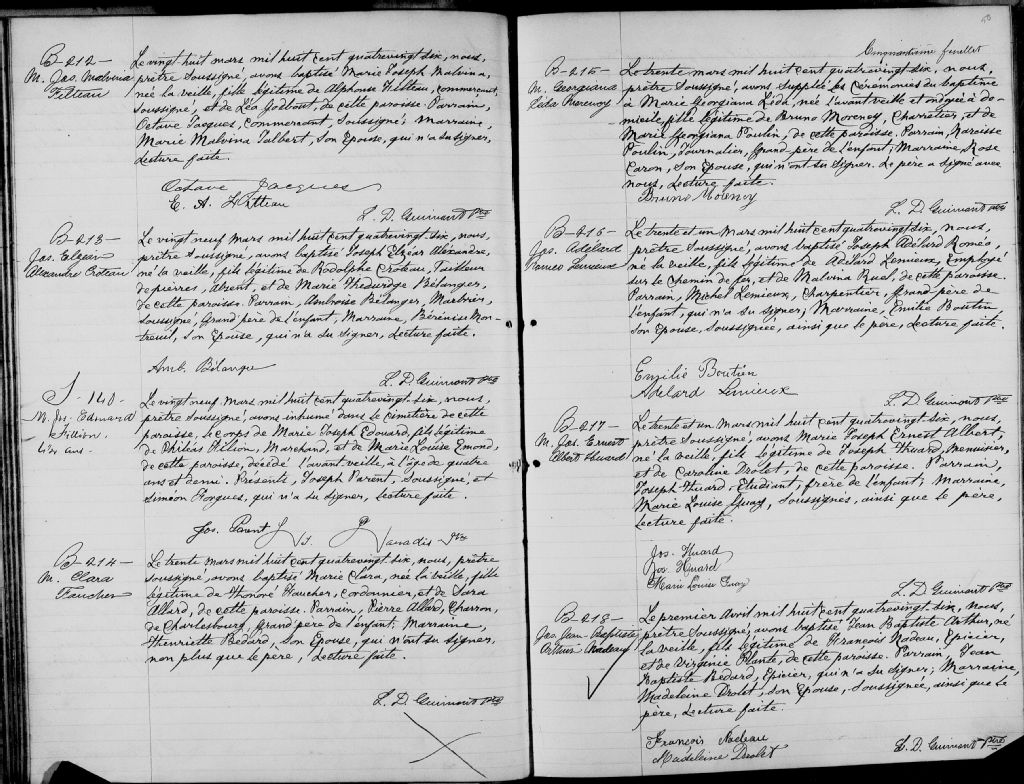 B-212-
M. Jos. Malvina
Filteau
Le vingt huit mars mil huit cent quatrevingt-six, nous,
prêtre soussigné, avons baptisé Marie Joseph Malvina,
née la veille, fille légitime de Alphonse Filteau, commerçant,
soussigné, et de Léa Godbout de cette paroisse. Parrain,
Octave Jacques, commerçant, soussigné; marraine,
Marie Malvina Talbert, son épouse, qui n'a su signer,
Lecture faite.
Octave Jacques
E. A. Filteau
L. D. Guimont Ptre
B-213-
Jos. Elzéar
Alexandre Croteau
Le vingt neuf mars mil huit cent quatrevingt-six, nous,
prêtre soussigné, avons baptisé Joseph Elzéar Alexandre,
né la veille, fils légitime de Rodolphe Croteau, tailleur
de pierres, absent, et de Marie Bélanger,
de cette paroisse. Parrain, Ambroise Bélanger, Marbrier,
soussigné, Grand père de l'enfant, Marraine, Bérénise Mon-
treuil, son épouse, qui n'a su signer, Lecture faite.
Amb. Bélanger
L. D. Guimont Ptre
S-140-
M. Jos. Edouard
Fillion.
4½ ans.
Le vingt neuf mars mil huit cent quatrevingt-six, nous,
prêtre soussigné, avons inhumé dans le cimetière de cette
paroisse, le corps de Marie Joseph Edouard, fils légitime
de Philéas Filion, Marchand, et de Marie Louise Emond,
de cette paroisse, décédé l'avant veille, à l'âge de quatre
ans et demi. Présents, Joseph Parent, soussigné, et
Siméon Forgues, qui n'a su signer, lecture faite.
Jos. Parent
Paradis Ptre
B-214-
M. Clara
Faucher
Le trente mars mil huit cent quatrevingt-six, nous, prêtre
soussigné, avons baptisé Marie Clara, née la veille, fille
légitime de Honoré Faucher, Cordonnier, et de Sara
Allard, de cette paroisse. Parrain, Pierre Allard, Charron,
de Charlesbourg, Grand père de l'enfant; Marraine,
Henriette Bédard, son épouse, qui n'ont su signer,
non plus que le père, Lecture faite.
L. D. Guimont Ptre
50
Cinquantième feuillet
B-215-
M. Georgiana
Moreney
Le trente mars mil huit cent quatrevingt-six, nous,
prêtre soussigné, avons suppléé les cérémonies du baptême
à Marie Georgiana Léda, née l'avant veille et ondoyée à do-
micile, fille légitime de Bruno Morency, Charretier, et de
Marie Georgiana Poulin, de cette paroisse. Parrain, Narcisse
Poulin, Journalier, Grand-père de l'enfant; Marraine, Rose
Caron, son épouse, qui n'ont su signer. Le père a signé avec
nous, Lecture faite.
Bruno Morency
L. D. Guimont Ptre
B-216-
Jos. Adélard
Roméo Lemieux
Le trente et un mars mil huit cent quatrevingt-six, nous,
prêtre soussigné, avons baptisé Joseph Adélard Roméo,
né la veille, fils légitime de Adélard Lemieux, Employé
sur le Chemin de fer, et de Malvina Ruel, de cette paroisse.
Parrain, Michel Lemieux, Charpentier, Grand-père de
l'enfant, qui n'a su signer; Marraine, Emilie Boutin
son épouse, soussignée, ainsi que le père, Lecture faite.
Emilie Boutin
Adelard Lemieux
L. D. Guimont Ptre
B-217-
M. Jos. Ernest
Albert Huard
Le trente et un mars mil huit cent quatrevingt-six, nous,
prêtre soussigné, avons Marie Joseph Ernest Albert,
né la veille, fils légitime de Joseph Huard, Menuisier,
et de Caroline Drolet, de cette paroisse. Parrain,
Joseph Huard, Etudiant, frère de l'enfant; Marraine,
Marie Louise Guay, soussignés, ainsi que le père,
Lecture faite.
Jos. Huard
Jos. Huard
Marie Louise Guay
L. D. Guimont Ptre
B-218-
Jos. Jean-Baptiste
Arthur Nadeau
Le premier Avril mil huit cent quatrevingt-six, nous,
prêtre soussigné, avons baptisé Jean Baptiste Arthur, né
la veille, fils légitime de François Nadeau, Epicier,
et de Virginie Plante, de cette paroisse. Parrain, Jean
Baptiste Bédard, Epicier, qui n'a su signer; Marraine,
Madeleine Drolet, son épouse, soussignée, ainsi que le
père, Lecture faite.
François Nadeau
Madeleine Drolet
L. D. Guimont Ptre